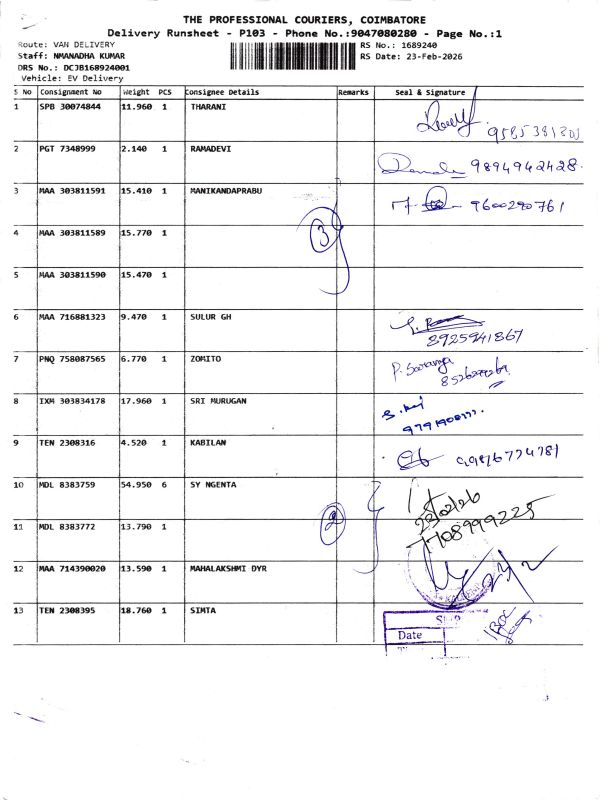 THE PROFESSIONAL COURIERS, COIMBATORE
Delivery Runsheet - P103 - Phone No.:9047080280 - Page No.:1
Route: VAN DELIVERY
RS No.: 1689240
Staff: NMANADHA KUMAR
RS Date: 23-Feb-2026
DRS No.: DCJB168924001
Vehicle: EV Delivery
S No Consignment No Weight PCS Consignee Details Remarks Seal & Signature
1 SPB 30074844 11.960 1 THARANI
2 PGT 7348999 2.140 1 RAMADEVI
9894942428.
3 MAA 303811591 15.410 1 MANIKANDAPRABU
9600290761
4 MAA 303811589 15.770 1
3
5 MAA 303811590 15.470 1
6 MAA 716881323 9.470 1 SULUR GH
8925941867
7 PNQ 758087565 6.770 1 ZOMITO
P. Saranya
8 IXM 303834178 17.960 1 SRI MURUGAN
9 TEN 2308316 4.520 1 KABILAN
10 MDL 8383759 54.950 6 SY NGENTA
23/02/26
7708999225
11 MDL 8383772 13.790 1
2
12 MAA 714390020 13.590 1 MAHALAKSHMI DYR
23/2
13 TEN 2308395 18.760 1 SIMTA
Date